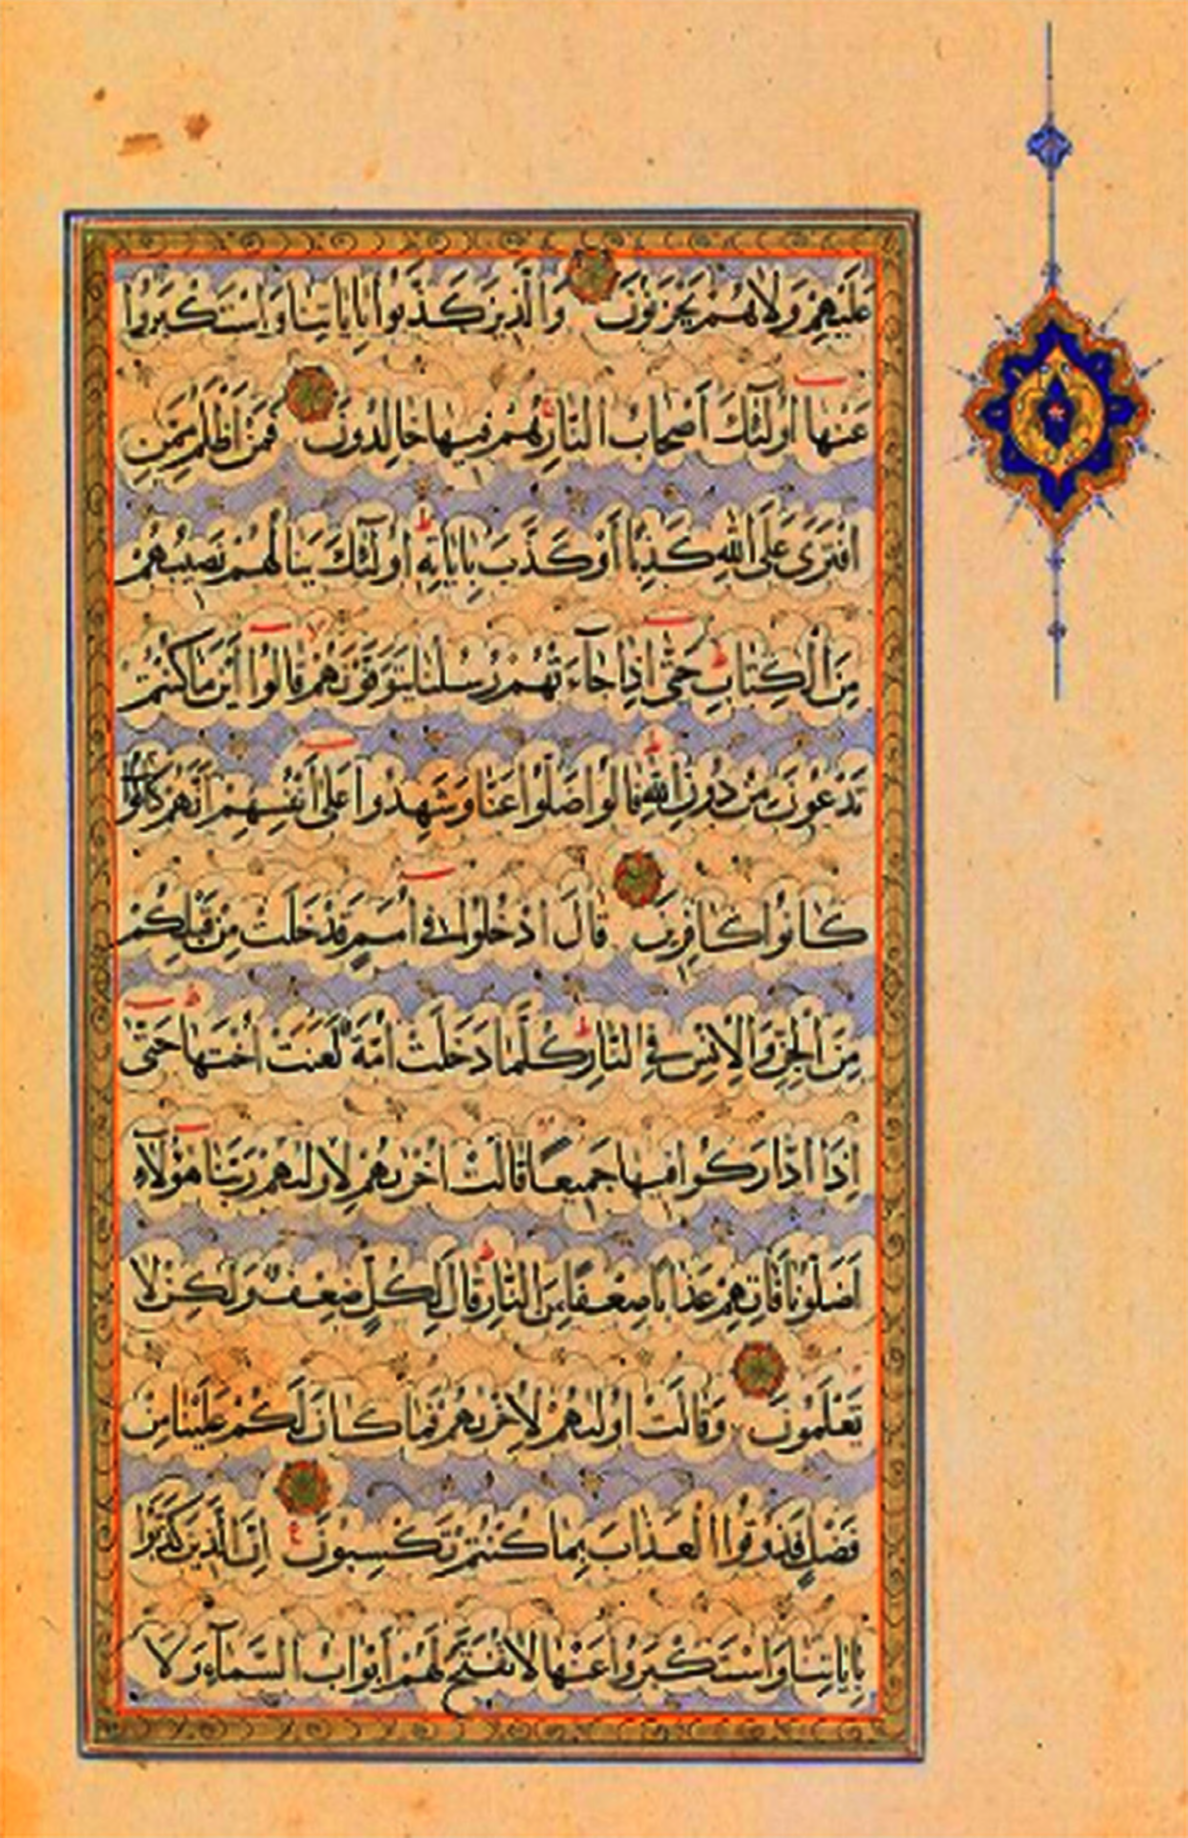 عَلَيْهِمْ وَلَا هُمْ يَحْزَنُونَ وَالَّذِينَ كَذَّبُوا بِاٰيَاتِنَا وَاسْتَكْبَرُوا
عَنْهَا أُولٰئِكَ أَصْحَابُ النَّارِ هُمْ فِيهَا خَالِدُونَ فَمَنْ أَظْلَمُ مِمَّنِ
افْتَرَى عَلَى اللّٰهِ كَذِبًا أَوْ كَذَّبَ بِاٰيَاتِهِ أُولٰئِكَ يَنَالُهُمْ نَصِيبُهُمْ
مِنَ الْكِتَابِ حَتّٰى إِذَا جَآءَتْهُمْ رُسُلُنَا يَتَوَفَّوْنَهُمْ قَالُوا أَيْنَ مَا كُنْتُمْ
تَدْعُونَ مِنْ دُونِ اللّٰهِ قَالُوا ضَلُّوا عَنَّا وَشَهِدُوا عَلَى أَنْفُسِهِمْ أَنَّهُمْ كَانُوا
كَانُوا كَافِرِينَ قَالَ ادْخُلُوا فِي أُمَمٍ قَدْ خَلَتْ مِنْ قَبْلِكُمْ
مِنَ الْجِنِّ وَالْإِنْسِ فِي النَّارِ كُلَّمَا دَخَلَتْ أُمَّةٌ لَعَنَتْ أُخْتَهَا حَتّٰى
إِذَا ادَّارَكُوا فِيهَا جَمِيعًا قَالَتْ أُخْرٰيهُمْ لِأُولٰيهُمْ رَبَّنَا هٰؤُلَآءِ
أَضَلُّونَا فَاٰتِهِمْ عَذَابًا ضِعْفًا مِنَ النَّارِ قَالَ لِكُلٍّ ضِعْفٌ وَلٰكِنْ لَا
تَعْلَمُونَ وَقَالَتْ أُولٰيهُمْ لِأُخْرٰيهُمْ فَمَا كَانَ لَكُمْ عَلَيْنَا مِنْ
فَضْلٍ فَذُوقُوا الْعَذَابَ بِمَا كُنْتُمْ تَكْسِبُونَ إِنَّ الَّذِينَ كَذَّبُوا
بِاٰيَاتِنَا وَاسْتَكْبَرُوا عَنْهَا لَا تُفَتَّحُ لَهُمْ أَبْوَابُ السَّمَآءِ وَلَا